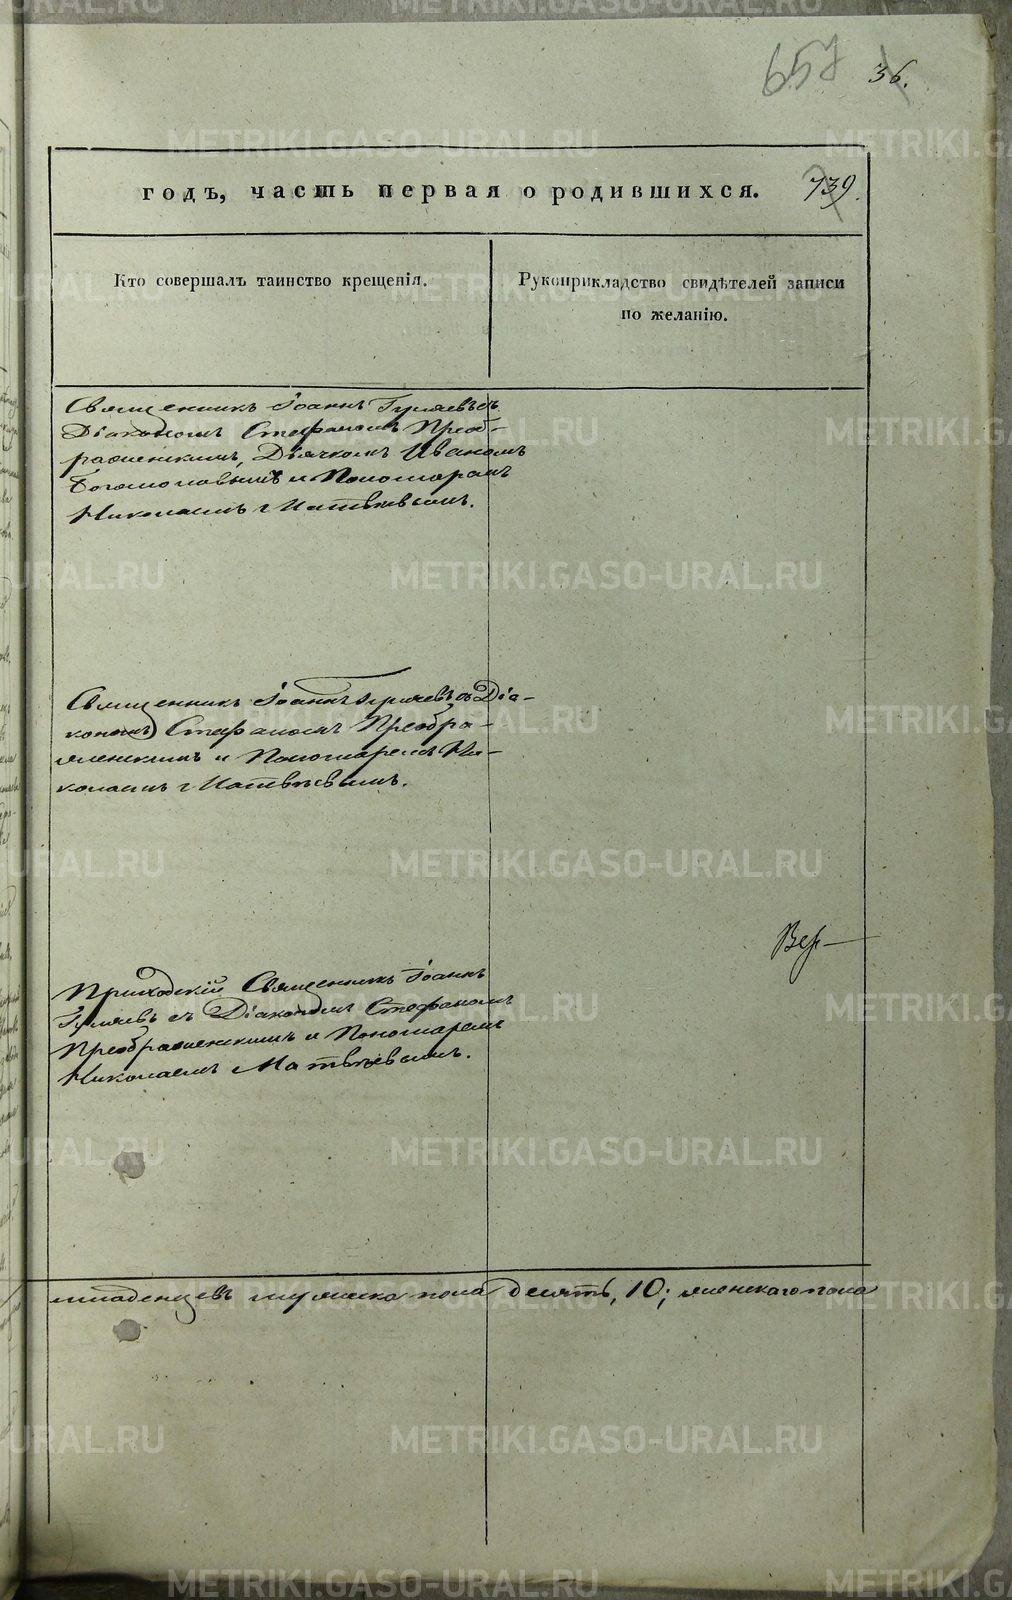 657 36.
годъ, часть первая о родившихся. 739.
Кто совершалъ таинство крещенія.
Рукоприкладство свидѣтелей записи
по желанію.
Священникъ Іоаннъ Гуляевъ съ
Діакономъ Стефаномъ Преоб-
раженскимъ, Дьячкомъ Иваномъ
Богомоловымъ и Пономаремъ
Николаемъ Матвѣевымъ.
Священникъ Іоаннъ Гуляевъ съ Діа-
кономъ Стефаномъ Преобра-
женскимъ и Пономаремъ Ни-
колаемъ Матвѣевымъ.
Вер-
Приходскій Священникъ Іоаннъ
Гуляевъ съ Діакономъ Стефаномъ
Преображенскимъ и Пономаремъ
Николаемъ Матвѣевымъ.
младенцевъ мужеска пола десять, 10; женскаго пола
METRIKI.GASO-URAL.RU